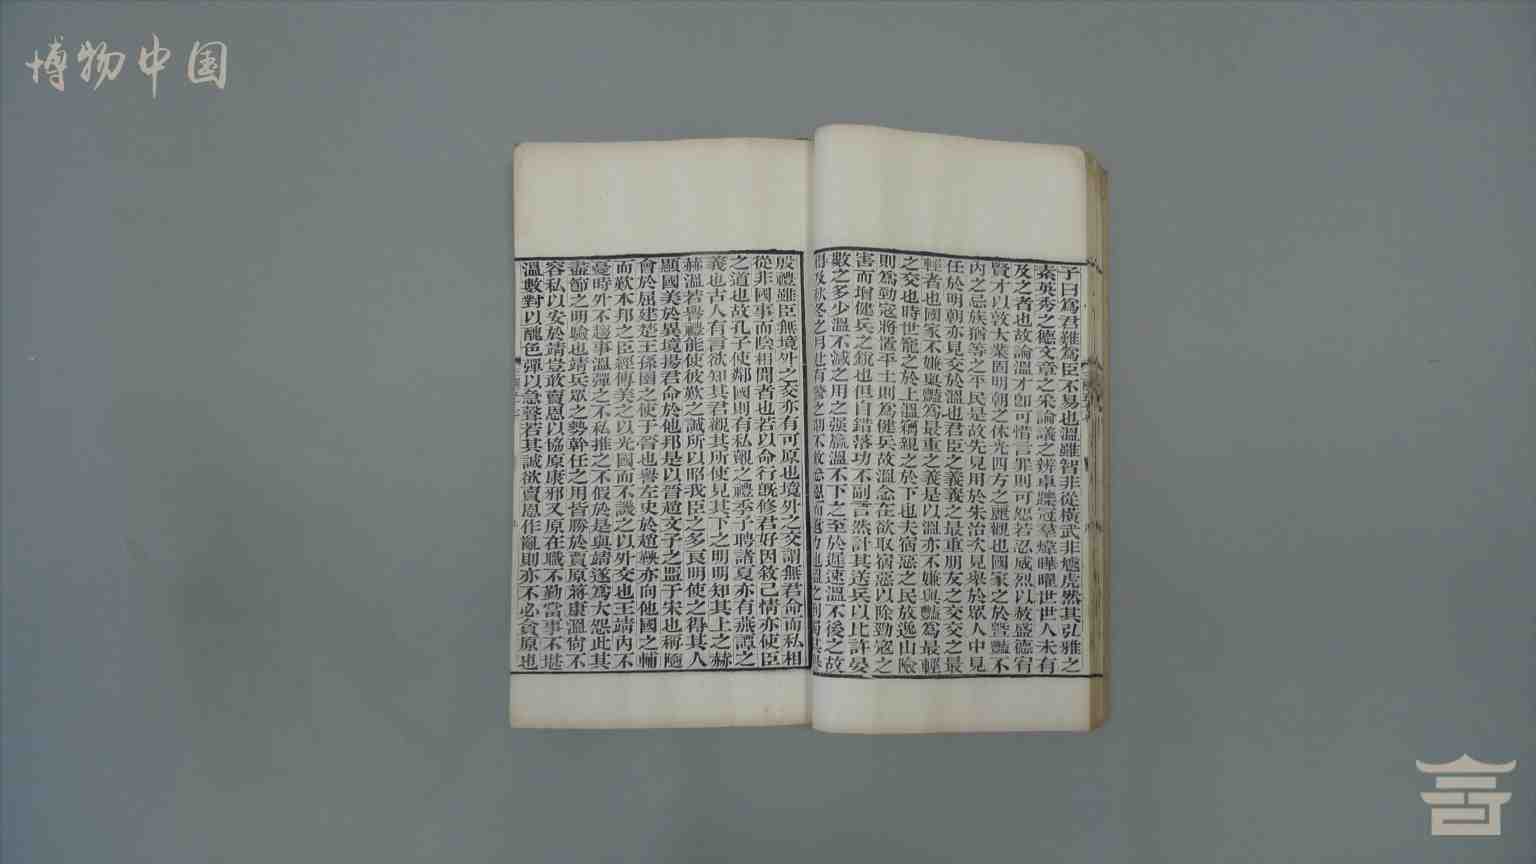 博物中国
子曰爲君難爲臣不易也溫雖智非從橫武非虓虎然其弘雅之
素英秀之德文章之采論議之辨卓躒冠羣煒曄曜世世人未有
及之者也故論溫才卽可惜言罪則可恕若忍威烈以赦盛德宥
賢才以敦大業固明朝之休光四方之麗觀也國家之於曁豔不
內之忌族猶等之平民是故先見用於朱治次見舉於眾人中見
任於明朝亦見交於溫也君臣之義義之最重朋友之交交之最
輕者也國家不嫌與豔爲最重之義是以溫亦不嫌與豔爲最輕
之交也時世寵之於上溫竊親之於下也夫宿惡之民放逸山險
則爲勁寇將置平土則爲健兵故溫念在欲取宿惡以除勁寇之
害而增健兵之銳也但自錯落功不副言然計其送兵以比許晏
數之多少溫不減之用之强羸溫不下之至於遲速溫不後之故
得及秋冬之月赴有警之期不敢忘恩而遺力也溫之到蜀共譽
殷禮雖臣無境外之交亦有可原也境外之交謂無君命而私相
從非國事而陰相聞者也若以命行旣修君好因敘己情亦使臣
之道也故孔子使鄰國則有私覿之禮季子聘諸夏亦有燕譚之
義也古人有言欲知其君觀其所使見其下之明明知其上之赫
赫溫若譽禮能使彼歎之誠所以昭我臣之多良明使之得其人
顯國美於異境揚君命於他邦是以晉趙文子之盟于宋也稱隨
會於屈建楚王孫圉之使于晉也譽左史於趙鞅亦向他國之輔
而歎本邦之臣經傳美之以光國而不譏之以外交也王靖內不
憂時外不趨事溫彈之不私推之不假於是與靖遂爲大怨此其
盡節之明驗也靖兵眾之勢幹任之用皆勝於賈原蔣康溫尙不
容私以安於靖豈敢賣恩以協原康邪又原在職不勤當事不堪
溫數對以醜色彈以急聲若其誠欲賣恩作亂則亦不必貪原也